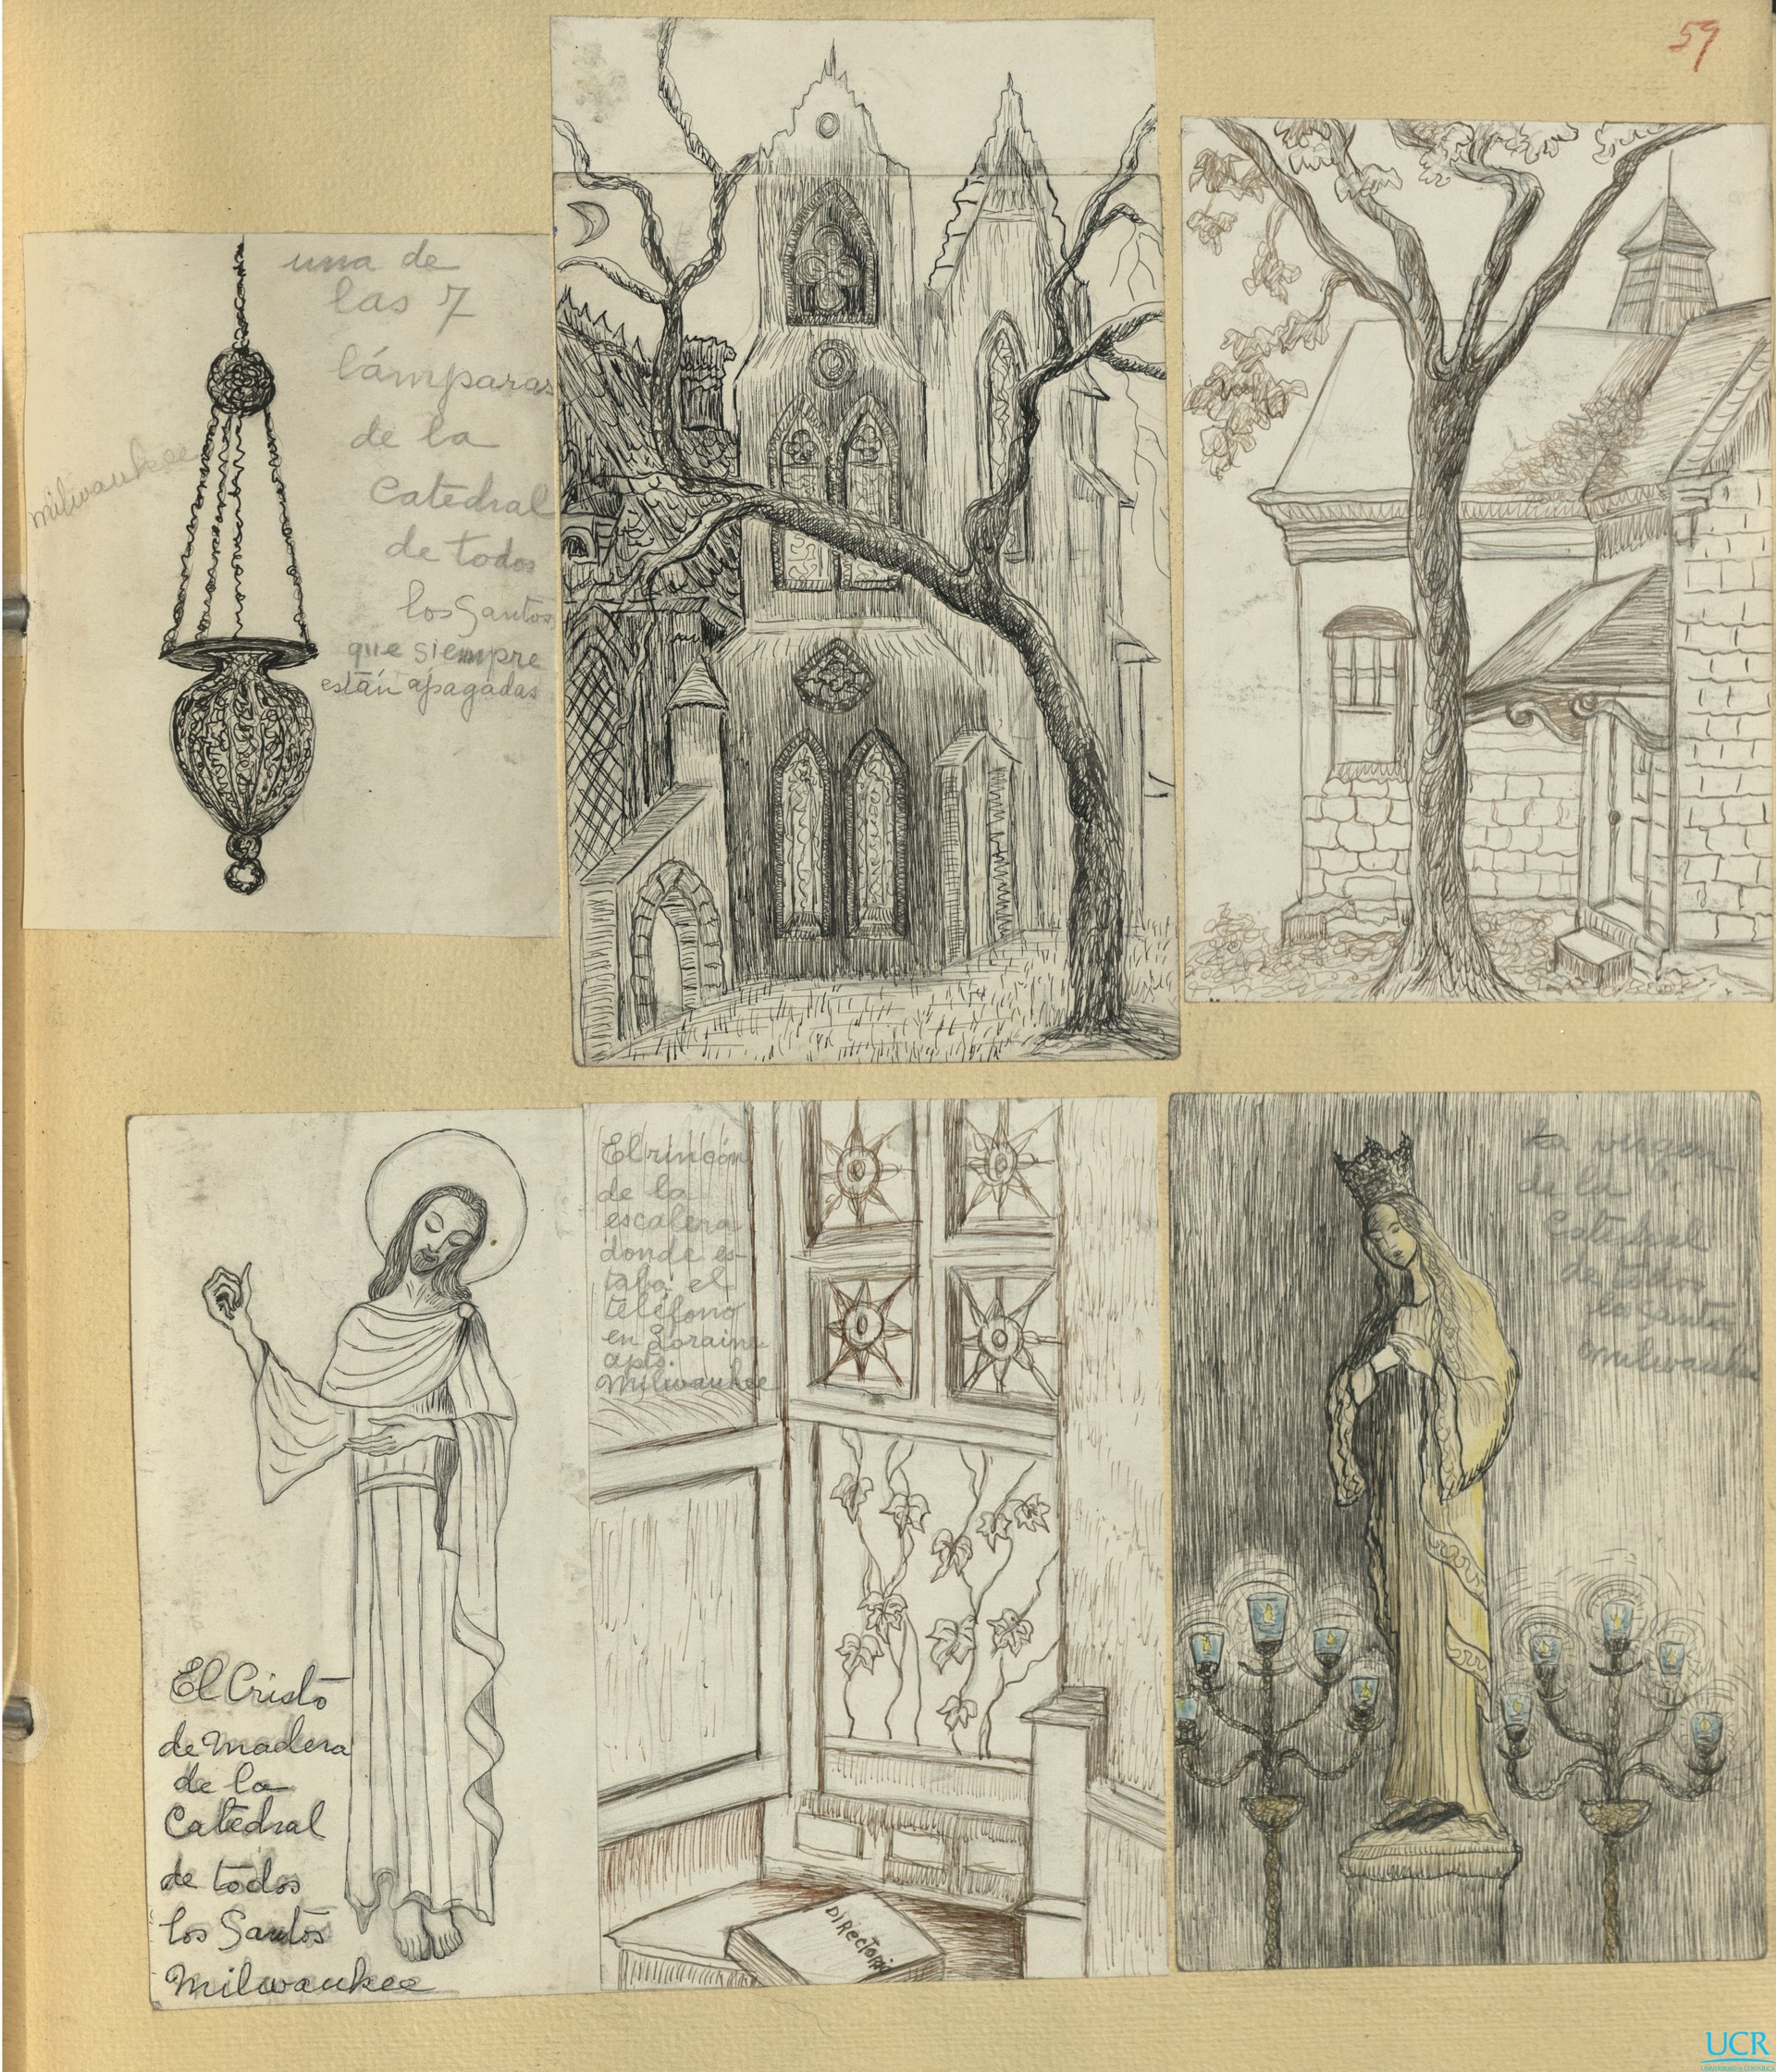 59
una de
las 7
lámparas
de la
Catedral
de todos
los Santos
que siempre
están apagadas
milwaukee
El Cristo
de madera
de la
Catedral
de todos
los Santos
Milwaukee
El rincón
de la
escalera
donde es-
taba el
teléfono
en Loraine
apts.
Milwaukee
DIRectori
La virgen
de la
Catedral
de todos
los Santos
milwaukee
UCR
UNIVERSIDAD DE COSTA RICA